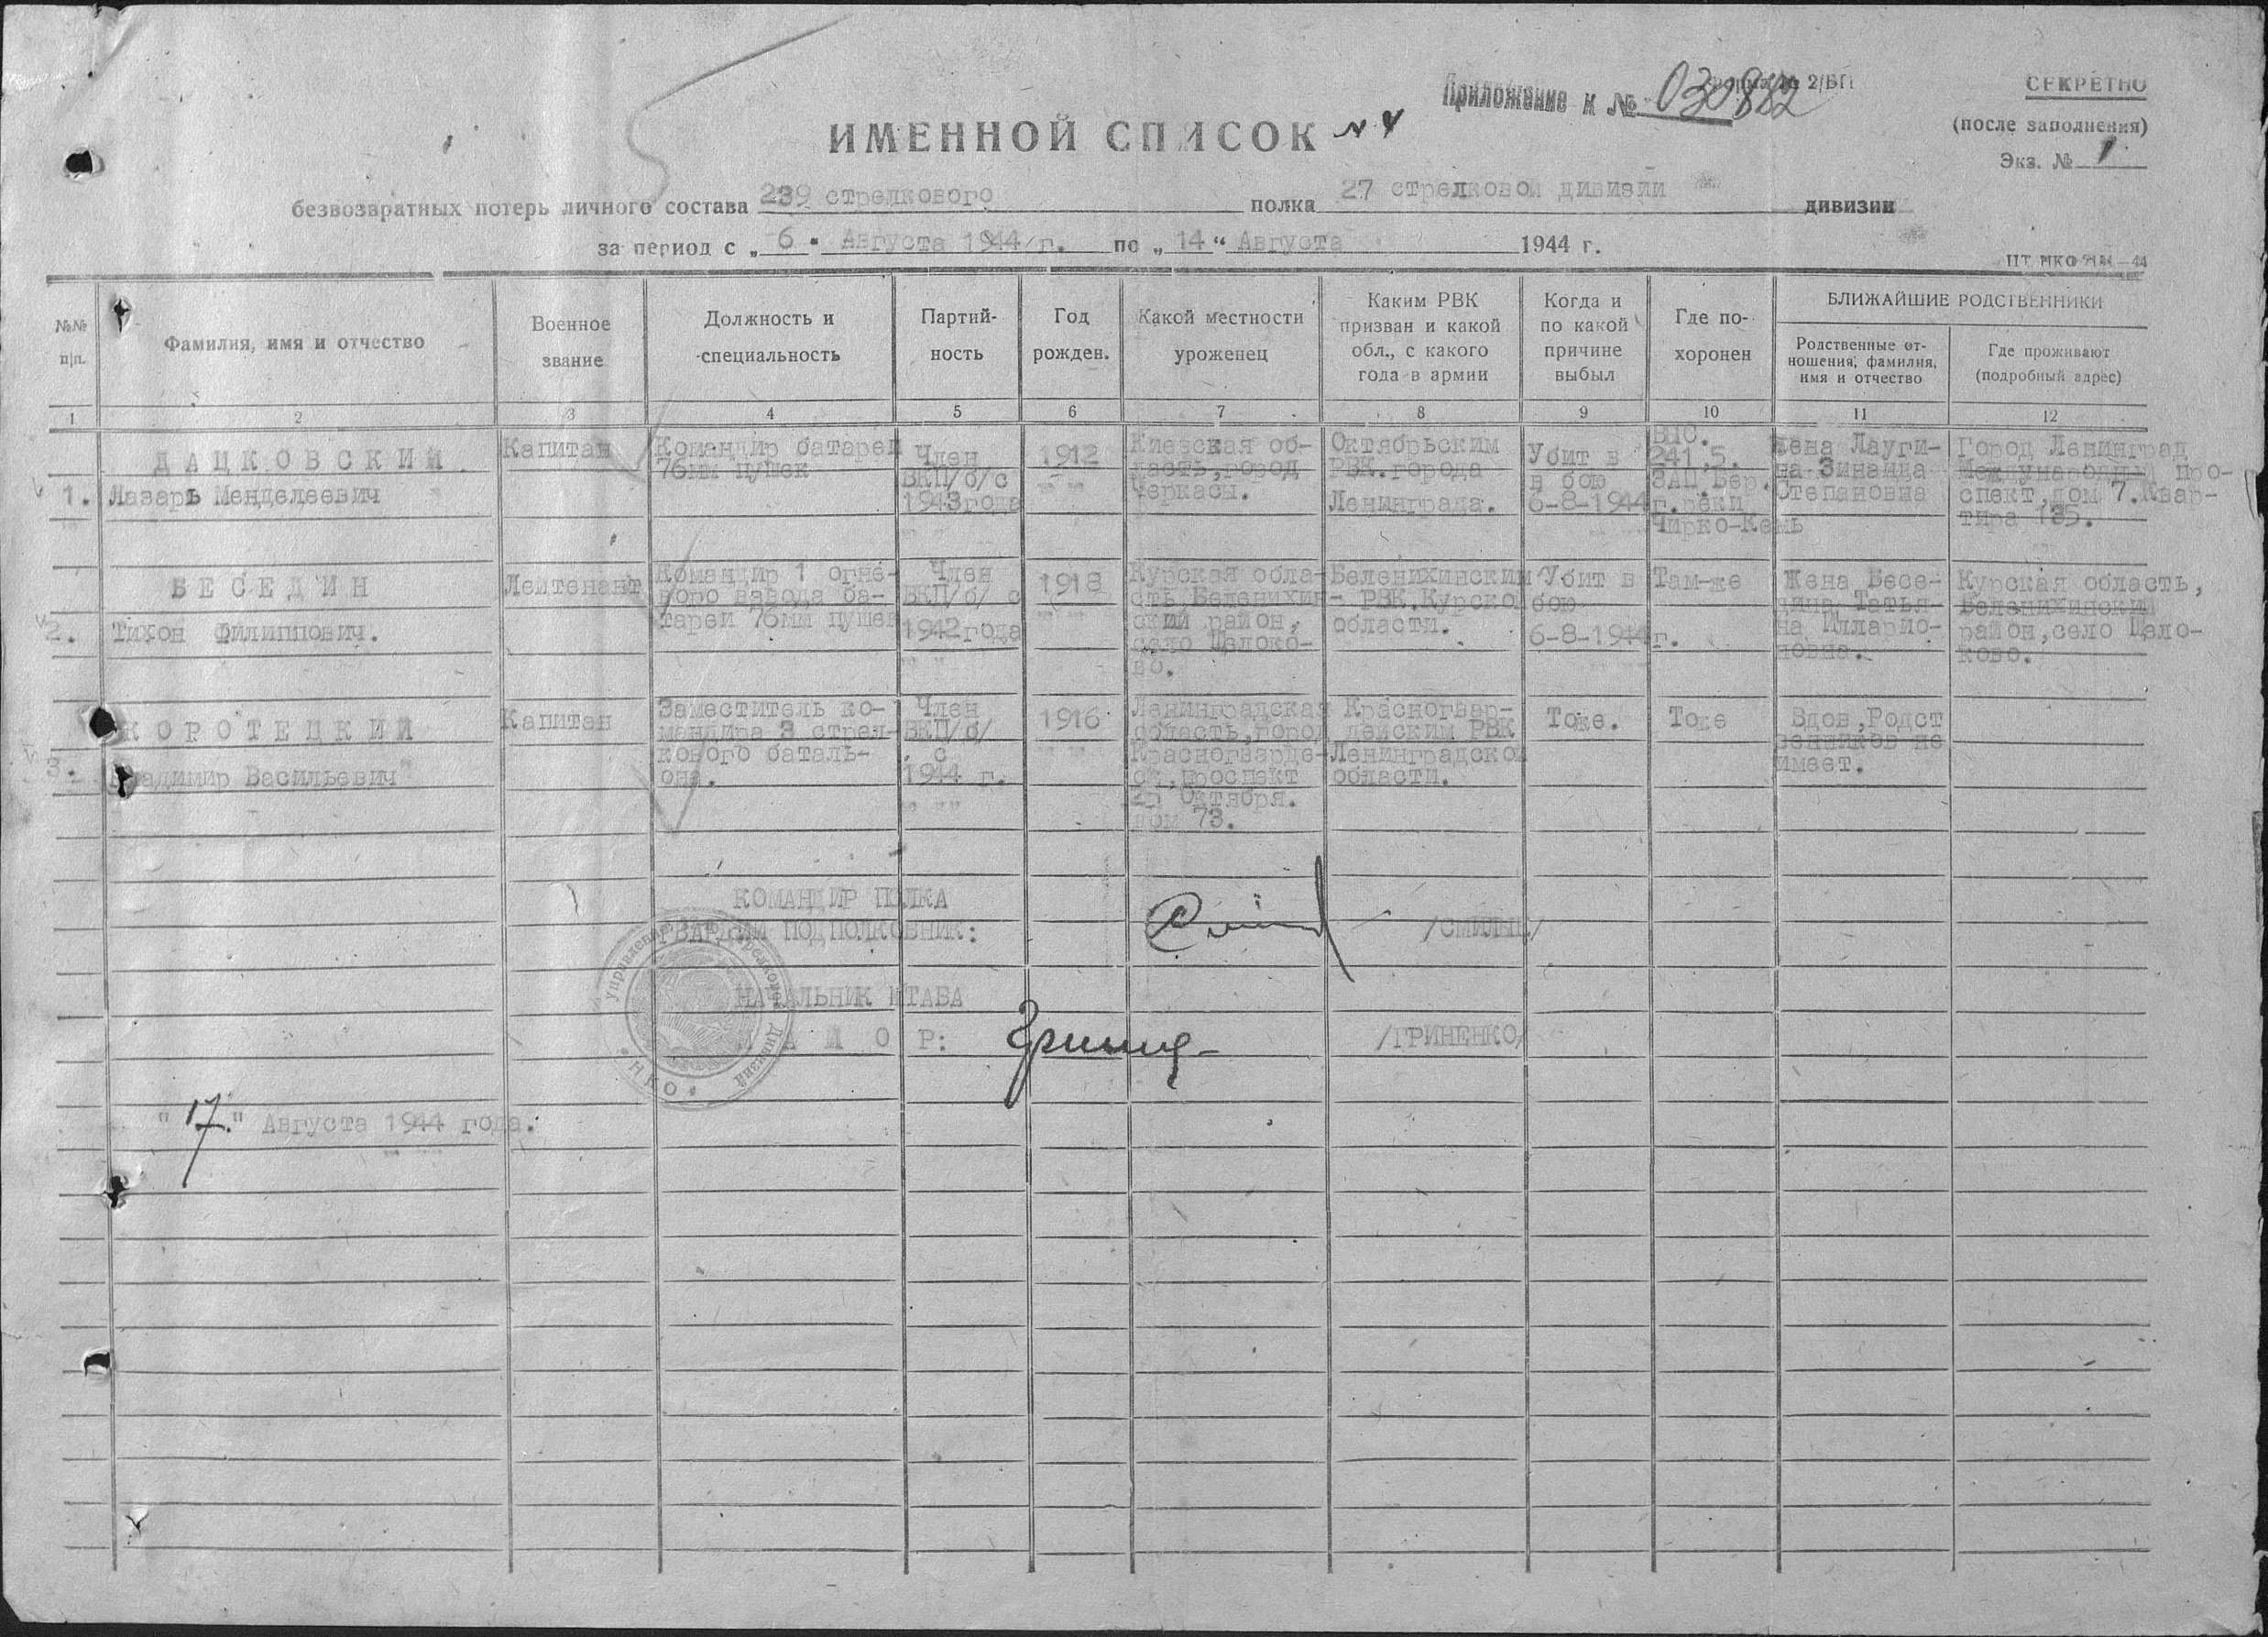 Приложение к № 030882
Форма № 2/БП
СЕКРЕТНО
(после заполнения)
Экз. № 1
ИМЕННОЙ СПИСОК № 4
безвозвратных потерь личного состава 239 стрелкового полка 27 стрелковой дивизии дивизии
за период с „ 6 " Августа 1944 г. по „ 14 " Августа 1944 г.
№№ п|п.
Фамилия, имя и отчество
Военное звание
Должность и специальность
Партийность
Год рожден.
Какой местности уроженец
Каким РВК призван и какой обл., с какого года в армии
Когда и по какой причине выбыл
Где похоронен
БЛИЖАЙШИЕ РОДСТВЕННИКИ
Родственные отношения, фамилия, имя и отчество
Где проживают (подробный адрес)
1 2 3 4 5 6 7 8 9 10 11 12
1.
ДАЦКОВСКИЙ
Лазарь Менделеевич
Капитан
Командир батареи
76мм пушек
Член
ВКП/б/с
1943года
1912
Киевская об-
ласть,город
Черкасы.
Октябрьским
РВК.города
Ленинграда.
Убит в
в бою
6-8-1944г.
ВЫС.
241,5.
ЗАП.Бер.
реки
Чирко-Кемь
Жена Лауги-
на Зинаида
Степановна
Город Ленинград
Международный про-
спект,дом 7.Квар-
тира 135.
2.
БЕСЕДИН
Тихон Филиппович.
Лейтенант
Командир 1 огне-
вого взвода ба-
тареи 76мм пушек
Член
ВКП/б/ с
1942года
1918
Курская обла-
сть Беленихин-
ский район,
село Шелоко-
во.
Беленихинским
РВК.Курской
области.
Убит в
бою
6-8-1944г.
Там-же
Жена Бесе-
дина Татья-
на Илларио-
новна.
Курская область,
Беленихинский
район,село Шело-
ково.
3.
КОРОТЕЦКИЙ
Владимир Васильевич
Капитан
Заместитель ко-
мандира 3 стрел-
кового баталь-
она.
Член
ВКП/б/
с
1944 г.
1916
Ленинградская
область,город
Красногварде-
йск,проспект
25 Октября.
дом 73.
Красногвар-
дейским РВК
Ленинградской
области.
Тоже.
Тоже
Вдов,Родст
венников не
имеет.
КОМАНДИР ПОЛКА
ГВАРДИИ ПОДПОЛКОВНИК:
/СМИЛЫЙ/
НАЧАЛЬНИК ШТАБА
МАЙОР:
/ГРИНЕНКО/
"17." Августа 1944 года.